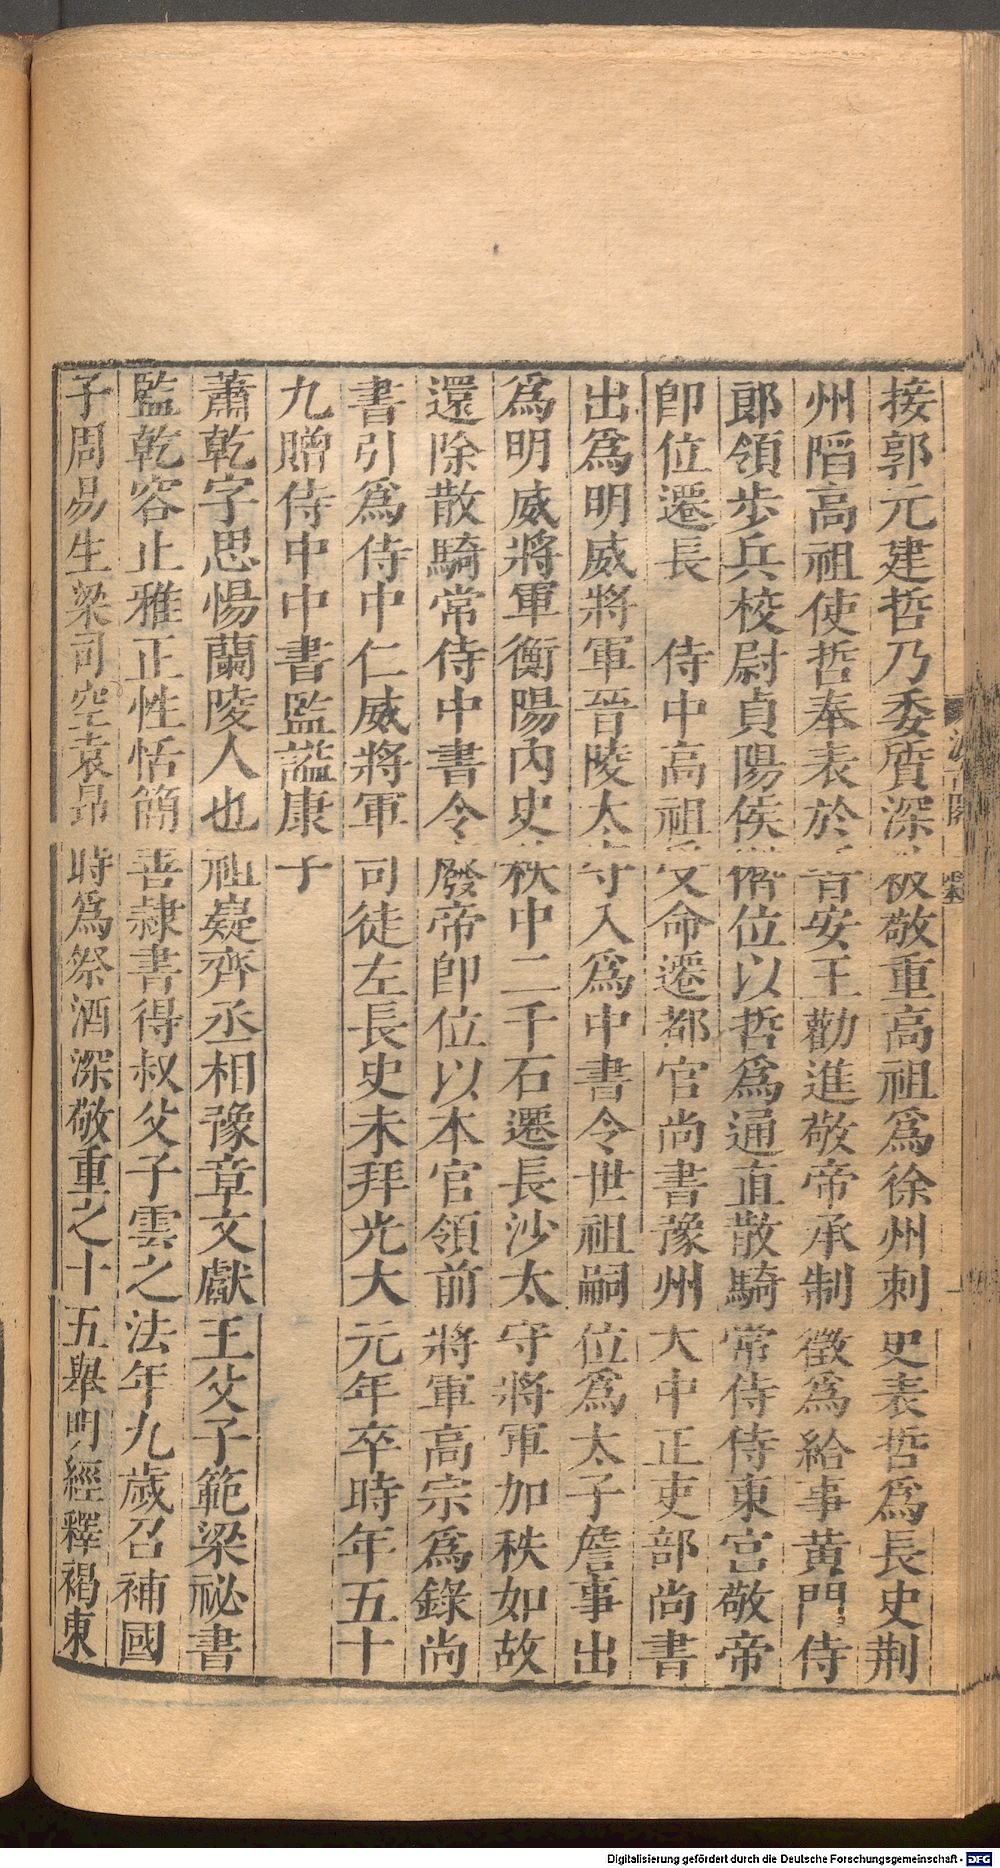 接郭元建哲乃委質深被敬重高祖為徐州刺史表哲為長史荆
州陷高祖使哲奉表於晉安王勸進敬帝承制徵為給事黃門侍
郎領步兵校尉貞陽侯僭位以哲為通直散騎常侍侍東宮敬帝
即位遷長 侍中高祖受命遷都官尚書豫州大中正吏部尚書
出為明威將軍晉陵太守入為中書令世祖嗣位為太子詹事出
為明威將軍衡陽內史秩中二千石遷長沙太守將軍加秩如故
還除散騎常侍中書令廢帝即位以本官領前將軍高宗為錄尚
書引為侍中仁威將軍司徒左長史未拜光大元年卒時年五十
九贈侍中中書監謚康子
蕭乾字思惕蘭陵人也祖嶷齊丞相豫章文獻王父子範梁祕書
監乾容止雅正性恬簡善隸書得叔父子雲之法年九歲召補國
子周易生梁司空袁昂時為祭酒深敬重之十五舉明經釋褐東
汲古閣
Digitalisierung gefördert durch die Deutsche Forschungsgemeinschaft - DFG